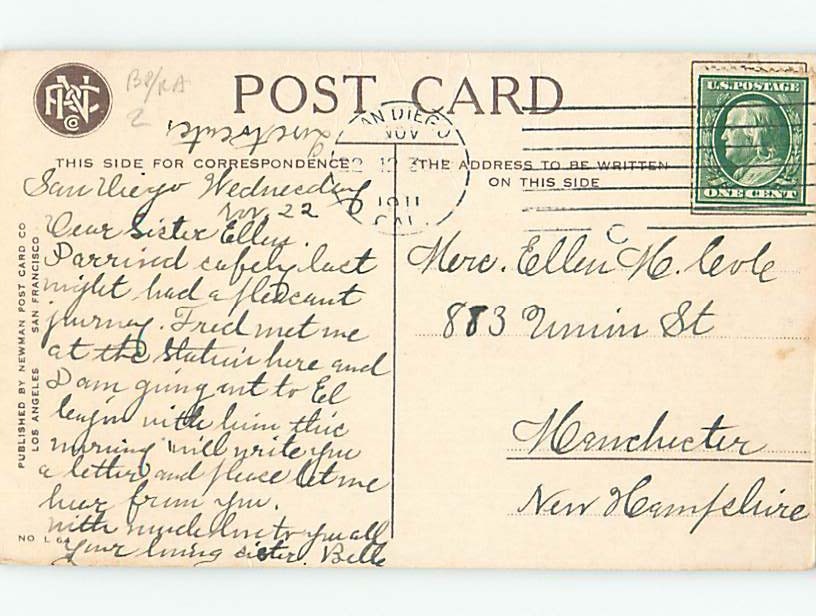 POST CARD
B8/RA
2
U.S. POSTAGE
ONE CENT
SAN DIEGO
NOV
22 12
1911
CAL
THIS SIDE FOR CORRESPONDENCE
THE ADDRESS TO BE WRITTEN
ON THIS SIDE
San Diego Wednesday
Nov. 22
Dear Sister Ellen.
I arrived safely last
night had a pleasant
journey. Fred met me
at the station here and
I am going out to El
Cajon with him this
morning will write you
a letter and please let me
hear from you.
with much love to you all
Your loving sister. Belle
Mrs. Ellen M. Cole
883 Union St
Manchester
New Hampshire
PUBLISHED BY NEWMAN POST CARD CO
LOS ANGELES SAN FRANCISCO
NO L 64